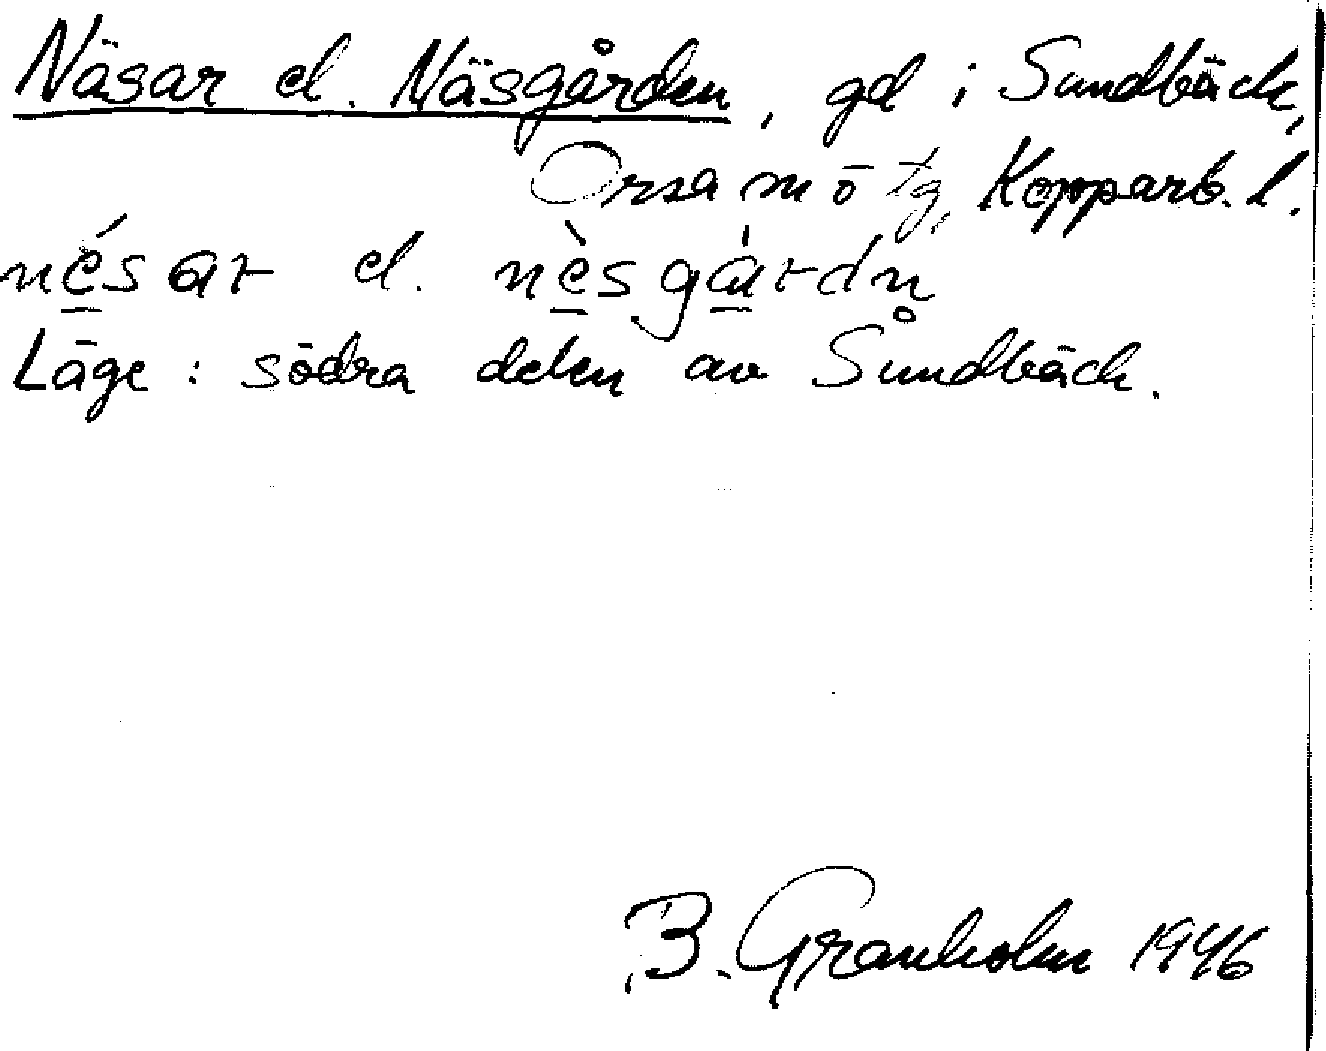 Näsar el. Näsgården, gd i Sundbäck,
Orsa sn ö tg, Kopparb. l.
nésar el. nèsgàrdn̥
Läge: södra delen av Sundbäck.
B. Granholm 1946